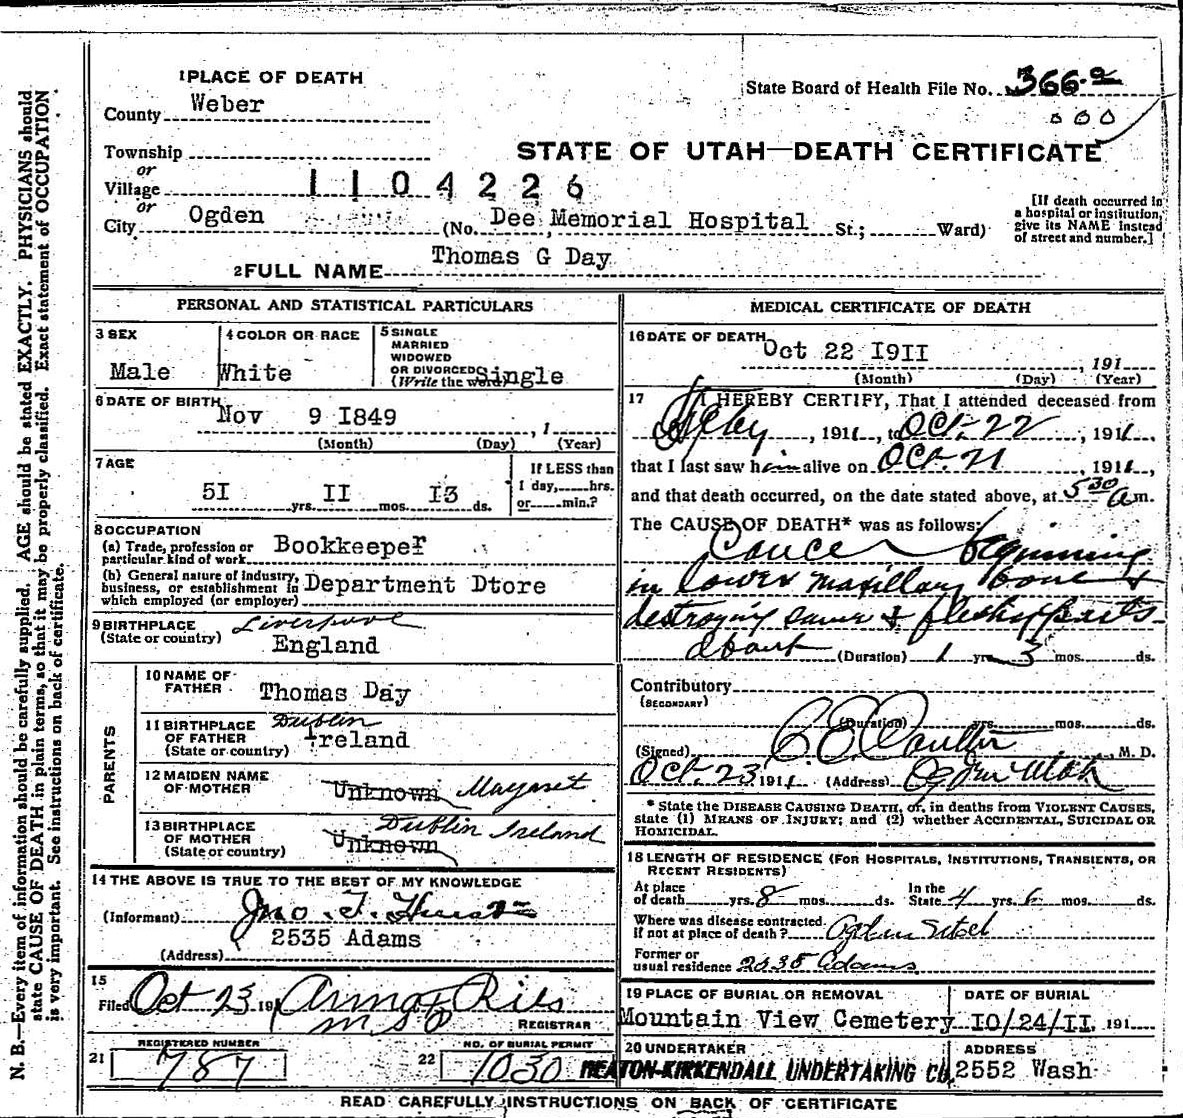 1 PLACE OF DEATH
County Weber
State Board of Health File No. 366-a
000
Township
or
Village
1104226
or
City Ogden
STATE OF UTAH—DEATH CERTIFICATE
(No. Dee Memorial Hospital St.; Ward)
[If death occurred in
a hospital or institution,
give its NAME instead
of street and number.]
2 FULL NAME Thomas G Day
PERSONAL AND STATISTICAL PARTICULARS
3 SEX
Male
4 COLOR OR RACE
White
5 SINGLE
MARRIED
WIDOWED
OR DIVORCED
(Write the word) Single
6 DATE OF BIRTH Nov 9 I849 , 1
(Month) (Day) (Year)
7 AGE
5I yrs. II mos. I3 ds.
If LESS than
1 day, hrs.
or min.?
8 OCCUPATION
(a) Trade, profession or
particular kind of work Bookkeeper
(b) General nature of industry,
business, or establishment in
which employed (or employer) Department Dtore
9 BIRTHPLACE
(State or country) Liverpool
England
PARENTS
10 NAME OF
FATHER Thomas Day
11 BIRTHPLACE
OF FATHER
(State or country) Dublin
Ireland
12 MAIDEN NAME
OF MOTHER Unknown Margaret
13 BIRTHPLACE
OF MOTHER
(State or country) Dublin Ireland
Unknown
14 THE ABOVE IS TRUE TO THE BEST OF MY KNOWLEDGE
(Informant) Jno. T. Hurst
(Address) 2535 Adams
15
Filed Oct 23 191
REGISTRAR
21 REGISTERED NUMBER
787
22 NO. OF BURIAL PERMIT
1030
MEDICAL CERTIFICATE OF DEATH
16 DATE OF DEATH Oct 22 I9II , 191
(Month) (Day) (Year)
17 I HEREBY CERTIFY, That I attended deceased from
, 1911, to Oct. 22, 1911,
that I last saw him alive on Oct. 21, 1911,
and that death occurred, on the date stated above, at 5 30 a m.
The CAUSE OF DEATH* was as follows:
Cancer beginning
in lower maxillary bone &
destroying same & fleshy parts
about (Duration) 1 yrs 3 mos. ds.
Contributory
(SECONDARY)
(Duration) yrs. mos. ds.
(Signed) C E Coulter, M. D.
Oct. 23 1911 (Address) Ogden Utah
* State the DISEASE CAUSING DEATH, or, in deaths from VIOLENT CAUSES,
state (1) MEANS OF INJURY; and (2) whether ACCIDENTAL, SUICIDAL OR
HOMICIDAL.
18 LENGTH OF RESIDENCE (FOR HOSPITALS, INSTITUTIONS, TRANSIENTS, OR
RECENT RESIDENTS)
At place
of death yrs. 8 mos. ds.
In the
State 4 yrs. 6 mos. ds.
Where was disease contracted
if not at place of death?
Former or
usual residence 2535 Adams
19 PLACE OF BURIAL OR REMOVAL
Mountain View Cemetery
DATE OF BURIAL
IO/24/II. 191
20 UNDERTAKER
HEATON-KIRKENDALL UNDERTAKING CO.
ADDRESS
2552 Wash
READ CAREFULLY INSTRUCTIONS ON BACK OF CERTIFICATE
N. B.—Every item of information should be carefully supplied. AGE should be stated EXACTLY. PHYSICIANS should
state CAUSE OF DEATH in plain terms, so that it may be properly classified. Exact statement of OCCUPATION
is very important. See instructions on back of certificate.